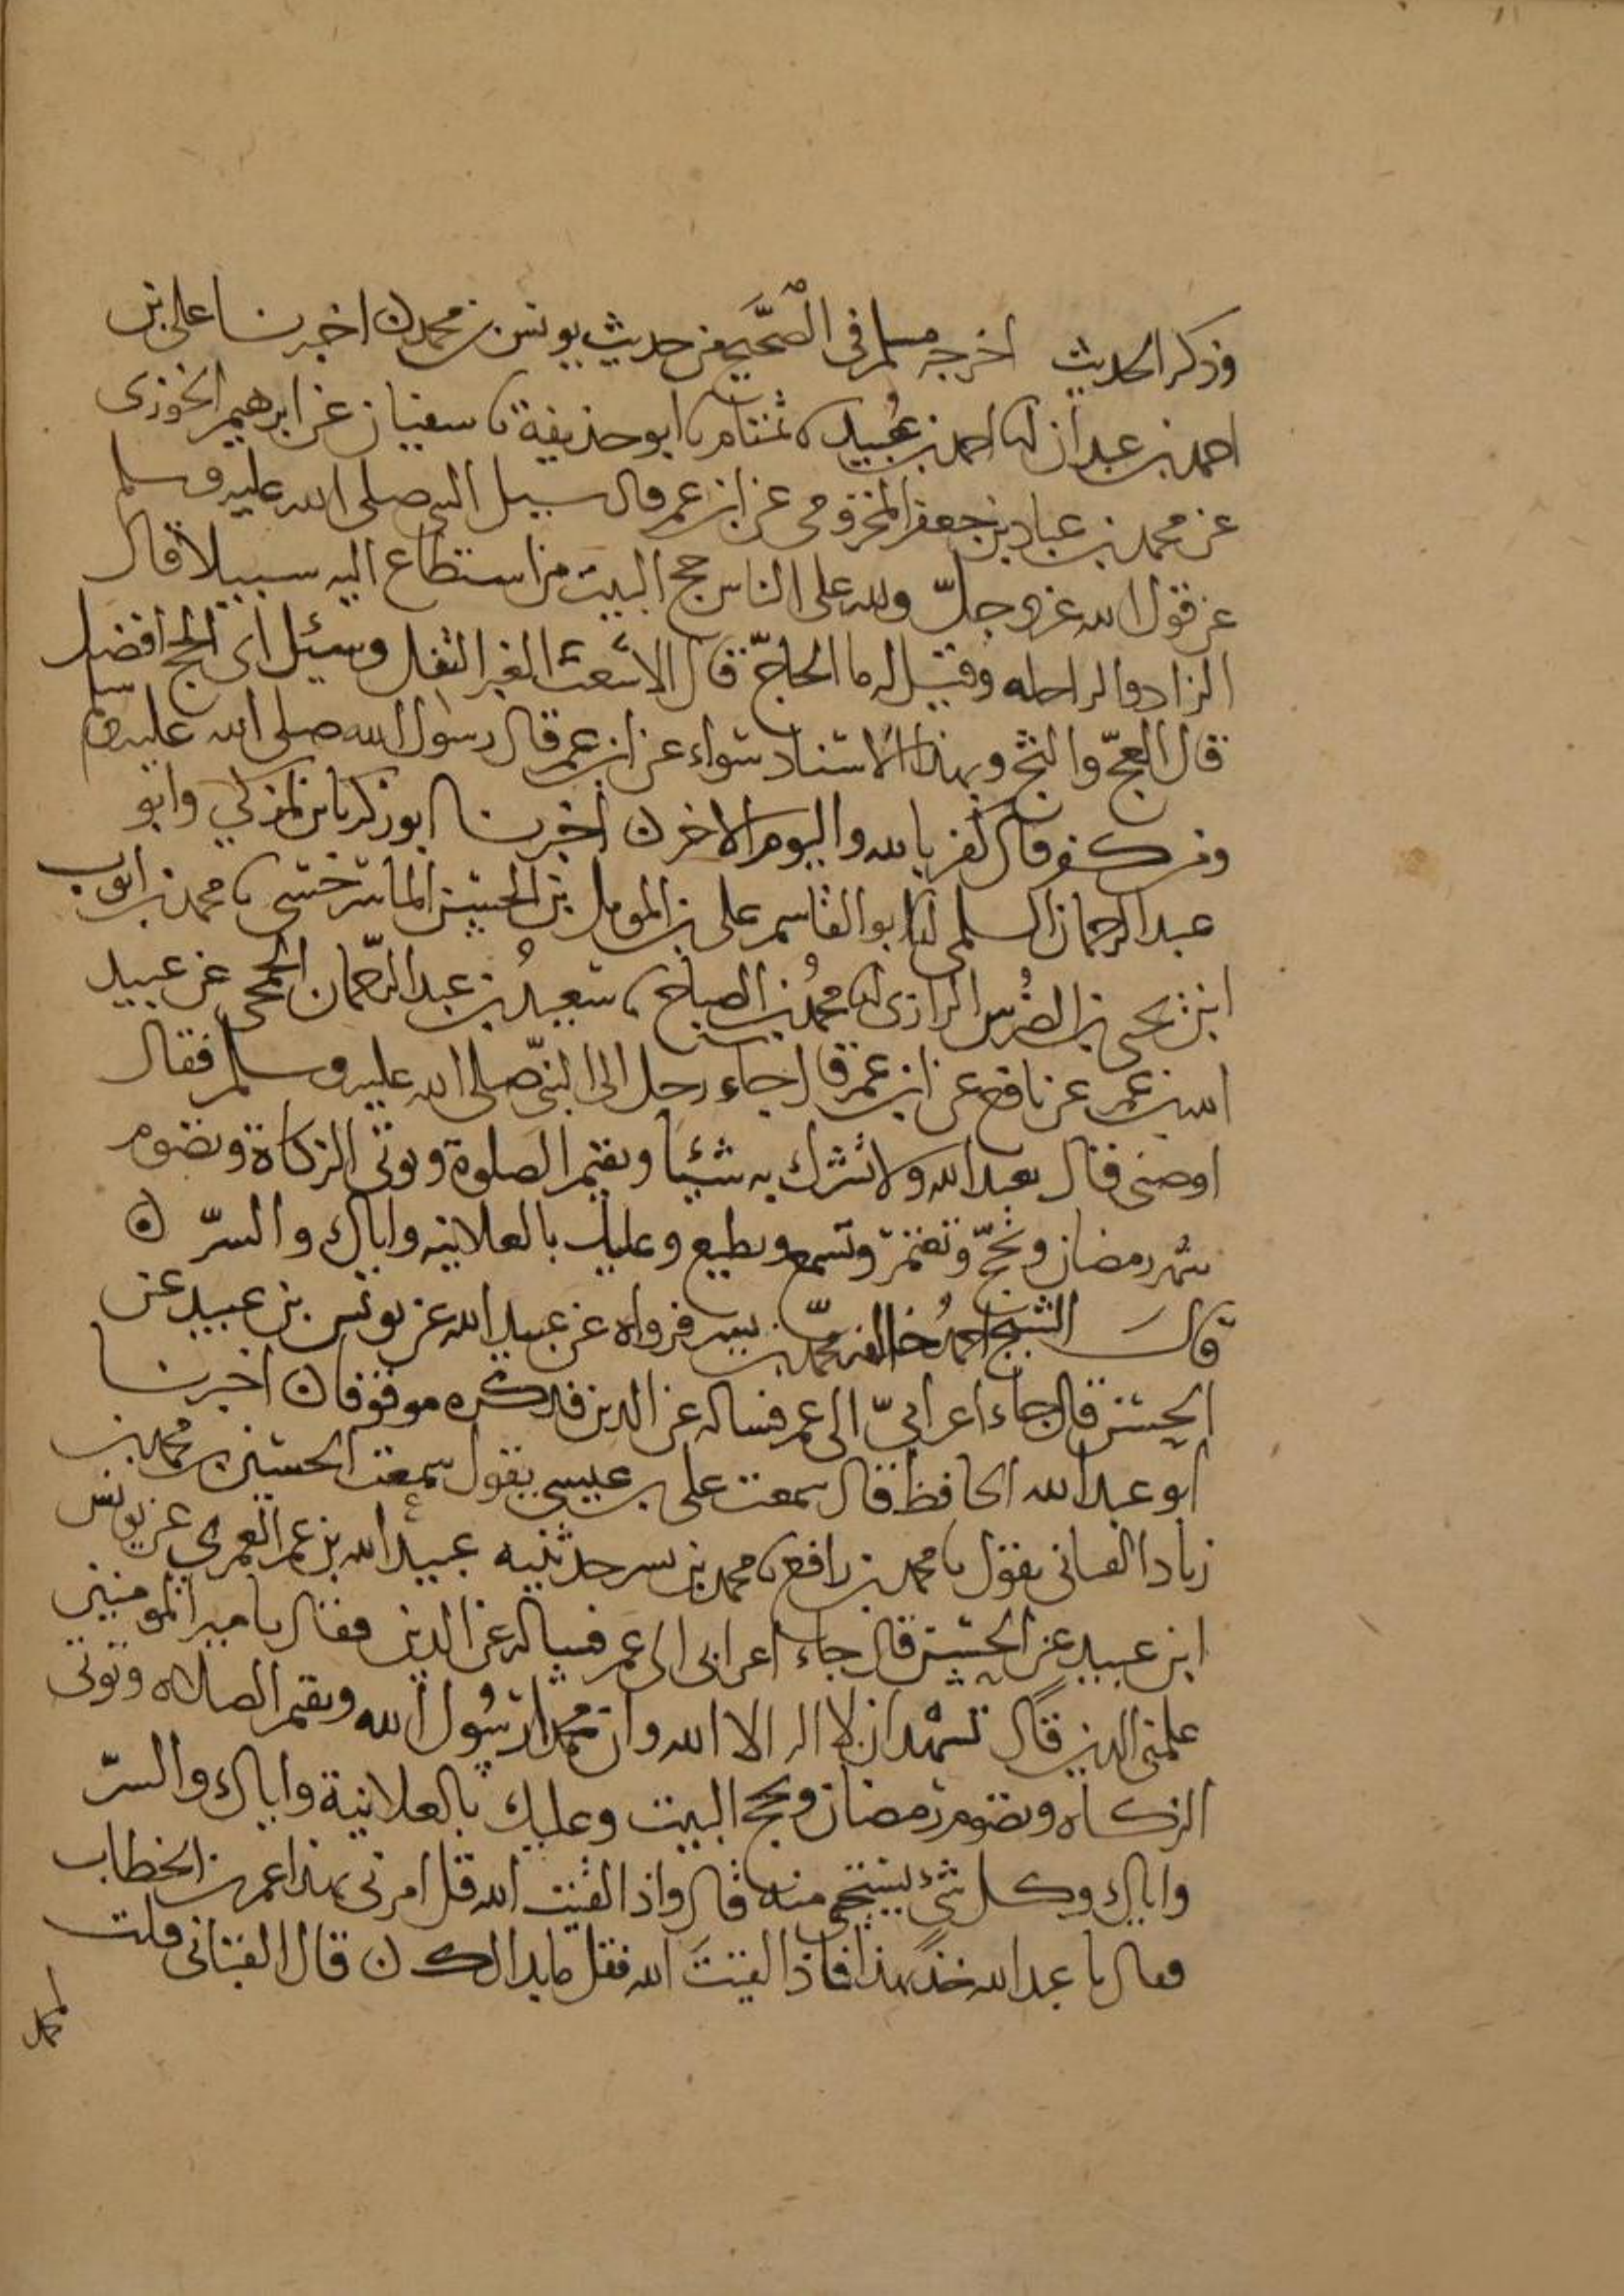 وذكر الحديث اخرجه مسلم في الصحيح من حديث يونس بن محمد ن اخبرنا علي بن
احمد بن عبدان انا احمد بن عبيد نا تمتام نا ابو حذيفة نا سفيان عن ابرهيم الخوزي
عن محمد بن عباد بن جعفر المخزومي عن ابن عمر قال سيل النبي صلى الله عليه وسلم
عن قول الله عز وجل ولله على الناس حج البيت من استطاع اليه سبيلا قال
الزاد والراحله وقيل له ما الحاج قال الاشعث الغبر التفل وسئل اي الحج افضل
قال العج والثج وبهذا الاسناد سواء عن ابن عمر قال رسول الله صلى الله عليه وسلم
ومن كفر قال كفر بالله واليوم الاخر ن اخبرنا ابو زكريا بن المزكي وابو
عبد الرحمان السلمي انا ابو القاسم علي بن المومل بن الحسن الماسرخسي نا محمد بن ايوب
ابن يحيى بن الضريس الرازي انا محمد بن الصباح نا سعيد بن عبد الرحمان الجمحي عن عبيد
الله بن عمر عن نافع عن ابن عمر قال جاء رجل الى النبي صلى الله عليه وسلم فقال
اوصني فقال تعبد الله ولا تشرك به شيئا وتقيم الصلوة وتوتي الزكاة وتصوم
شهر رمضان وتحج وتعتمر وتسمع وتطيع وعليك بالعلانيه واياك والسر ن
قال الشيخ احمد خالفه محمد بن بشر فرواه عن عبيد الله عن يونس بن عبيد عن
الحسن قال جاء اعرابي الى عمر فساله عن الدين فذكره موقوفا ن اخبرنا
ابو عبد الله الحافظ قال سمعت علي بن عيسى يقول سمعت الحسين بن محمد بن
زياد القباني يقول نا محمد بن رافع نا محمد بن بسر حدثنيه عبيد الله بن عمر العمري عن يونس
ابن عبيد عن الحسن قال جاء اعرابي الى عمر فساله عن الدين فقال يا مير المومنين
علمني الدين قال تشهد ان لا اله الا الله وان محمدا رسول الله وتقيم الصلاه وتوتي
الزكاه وتصوم رمضان وتحج البيت وعليك بالعلانية واياك والسر
واياك وكل شيء يستحى منه قال واذا لقيت الله قل امرني بهذا عمر بن الخطاب
فقال يا عبد الله خذ بهذا فاذا لقيت الله فقل ما بدا لك ن قال القباني قلت
لمحمد